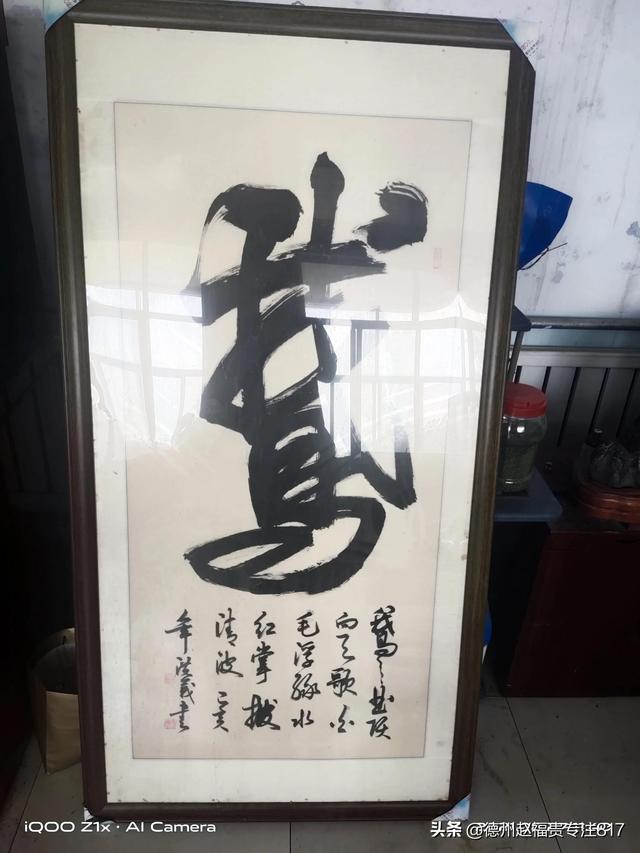 鵞
鵞〻曲项
向天歌白
毛浮绿水
红掌拨
清波 己亥
年洪義书
iQOO Z1x · AI Camera
头条 @德州赵福贵专注817